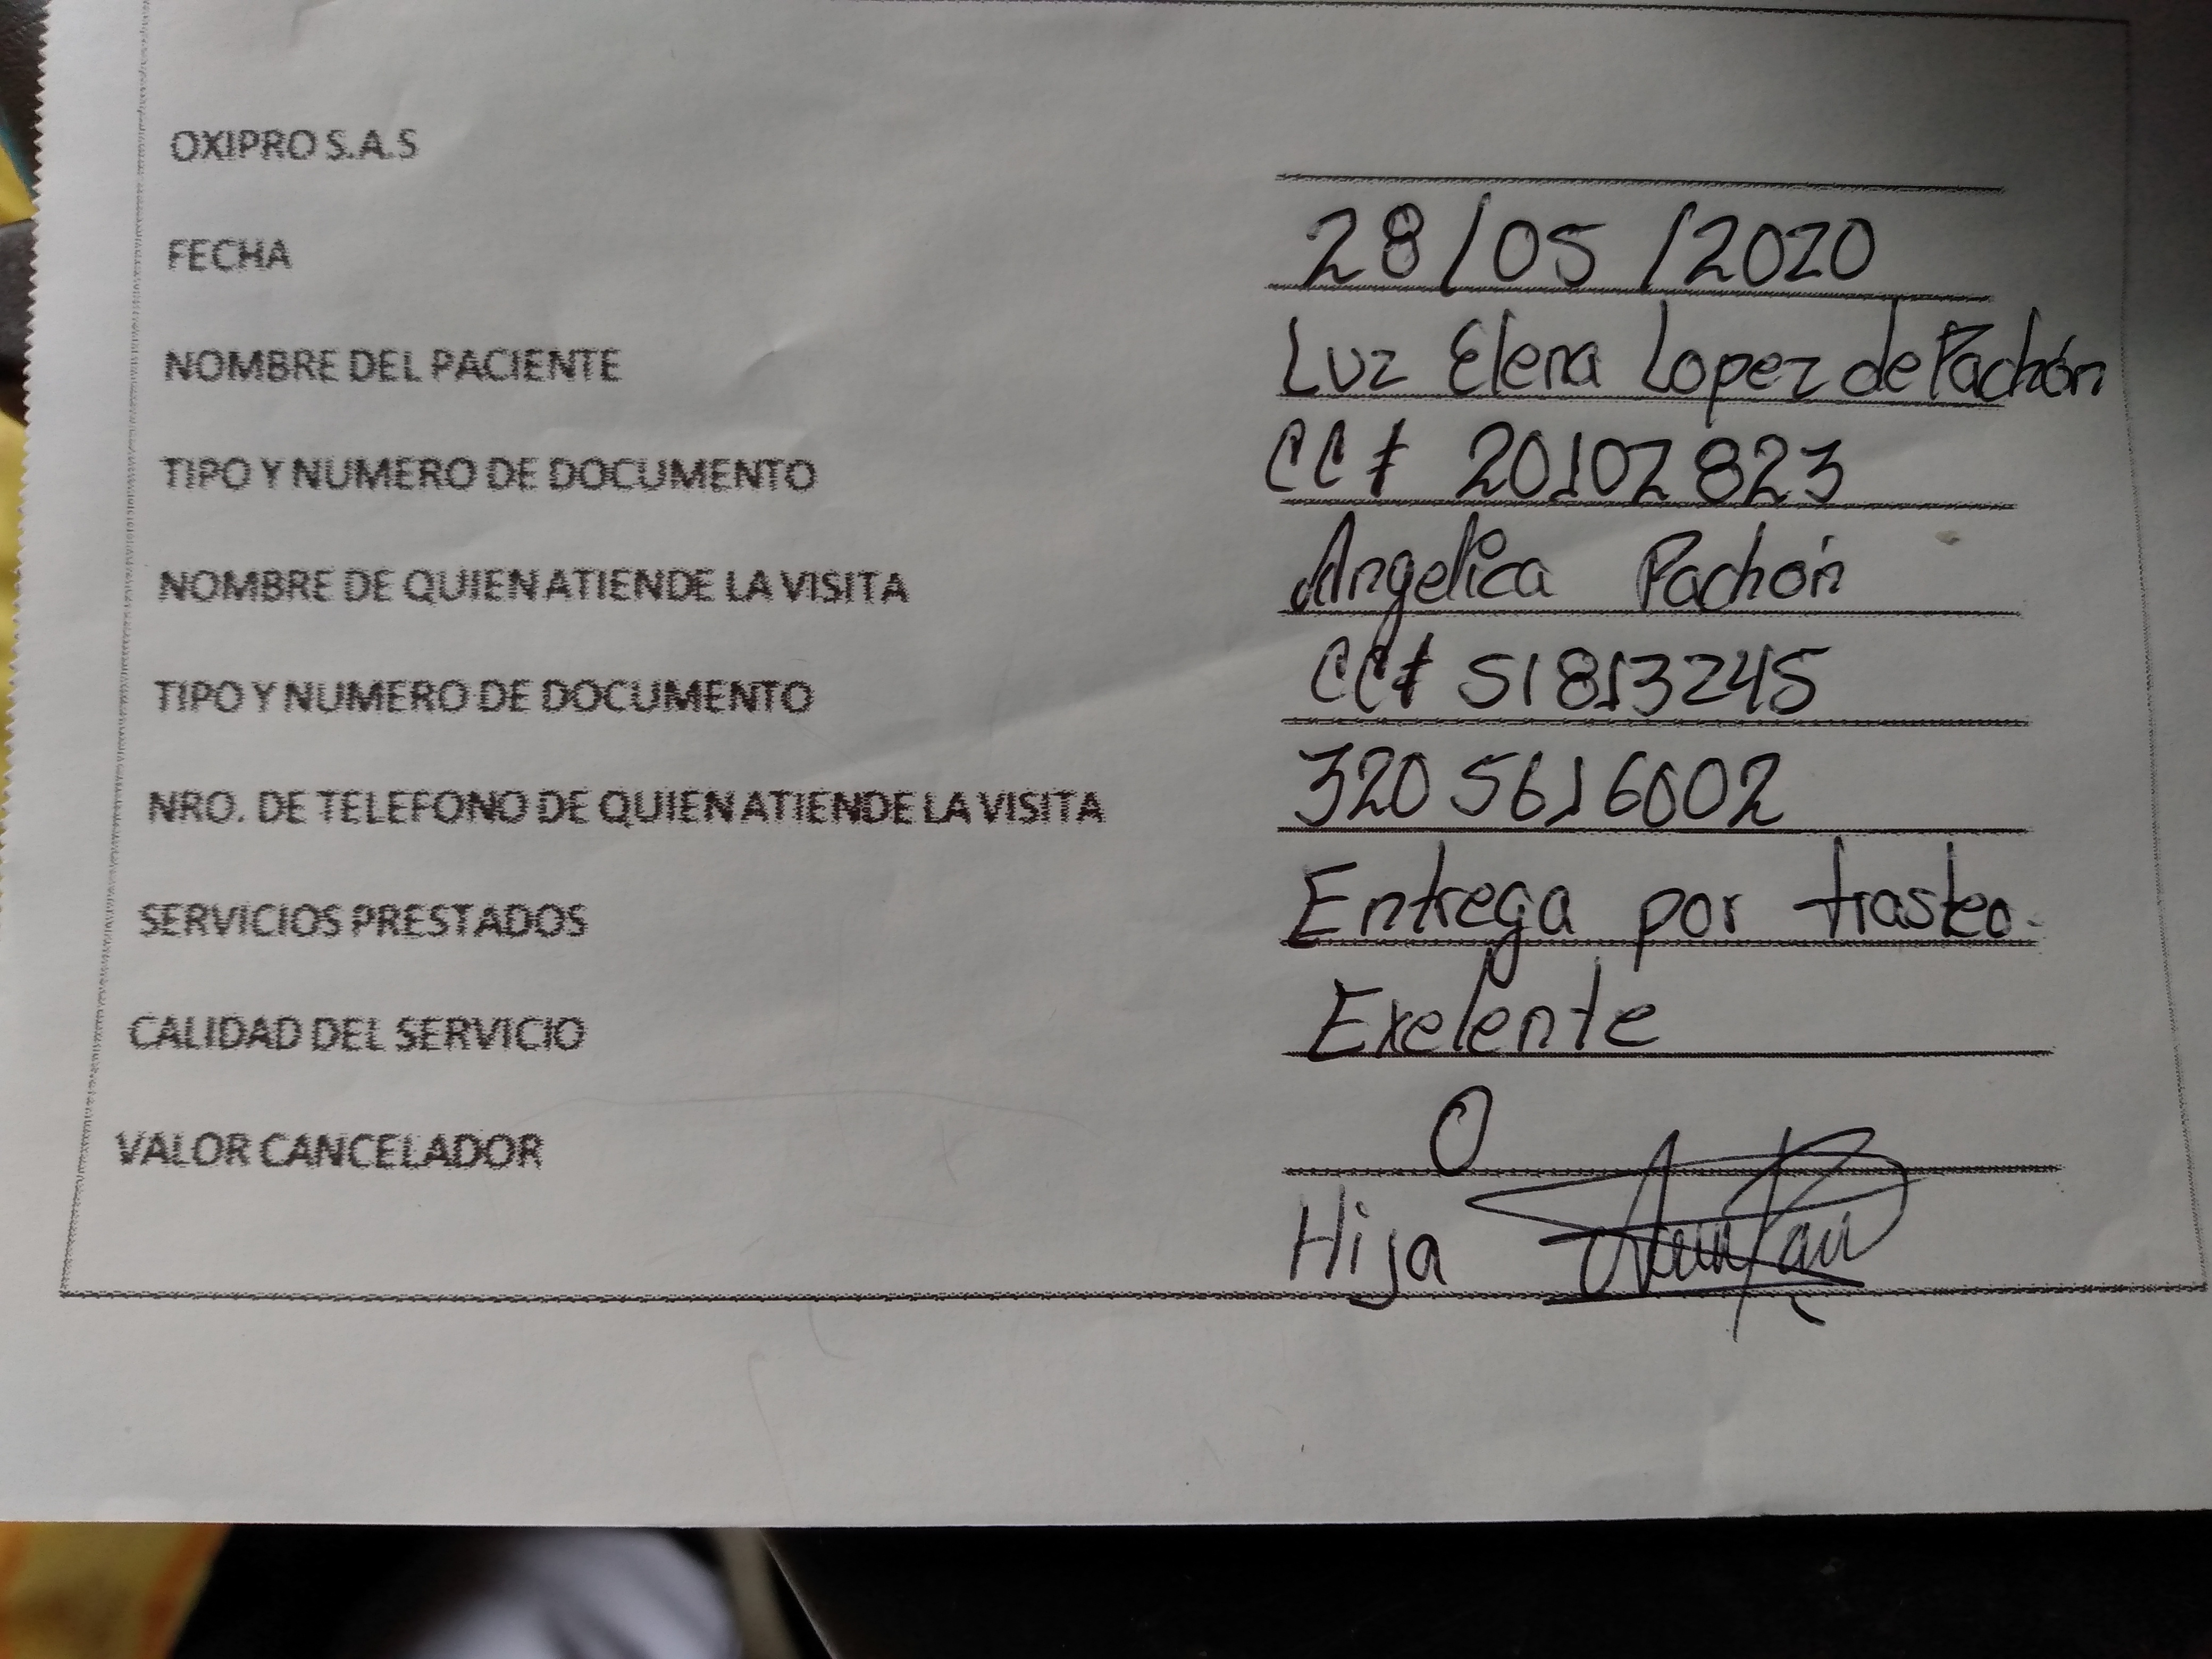 OXIPRO S.A.S
FECHA 28/05/2020
NOMBRE DEL PACIENTE Luz Elena Lopez de Pachón
TIPO Y NUMERO DE DOCUMENTO CC# 20102823
NOMBRE DE QUIEN ATIENDE LA VISITA Angelica Pachón
TIPO Y NUMERO DE DOCUMENTO CC# 51813245
NRO. DE TELEFONO DE QUIEN ATIENDE LA VISITA 320 5616002
SERVICIOS PRESTADOS Entrega por trasteo.
CALIDAD DEL SERVICIO Exelente
VALOR CANCELADOR 0
Hija